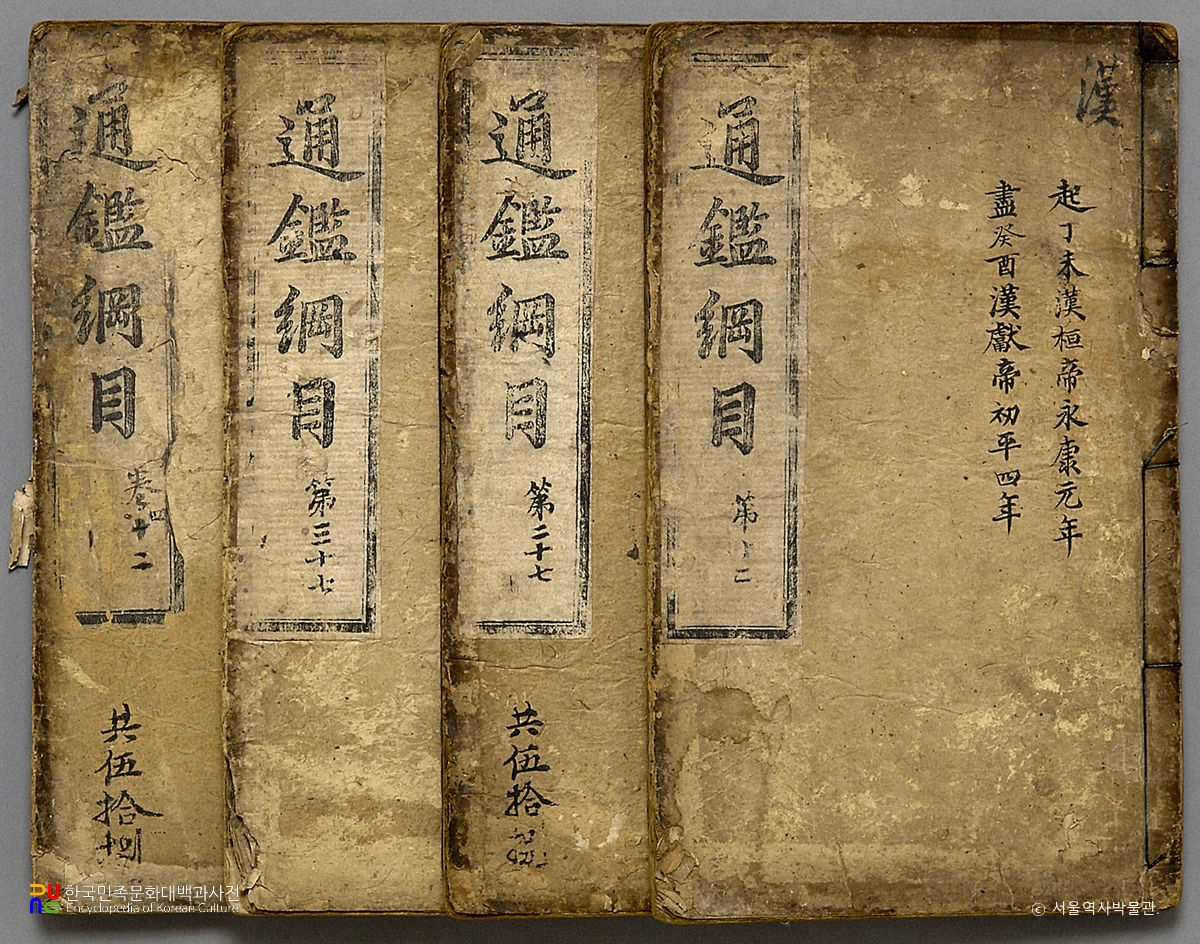 漢
起丁未漢桓帝永康元年
盡癸酉漢獻帝初平四年
通鑑綱目
第十二
通鑑綱目
第二十七
共伍拾
通鑑綱目
第三十七
通鑑綱目
卷之四十二
共伍拾捌
한국민족문화대백과사전
Encyclopedia of Korean Culture
© 서울역사박물관.